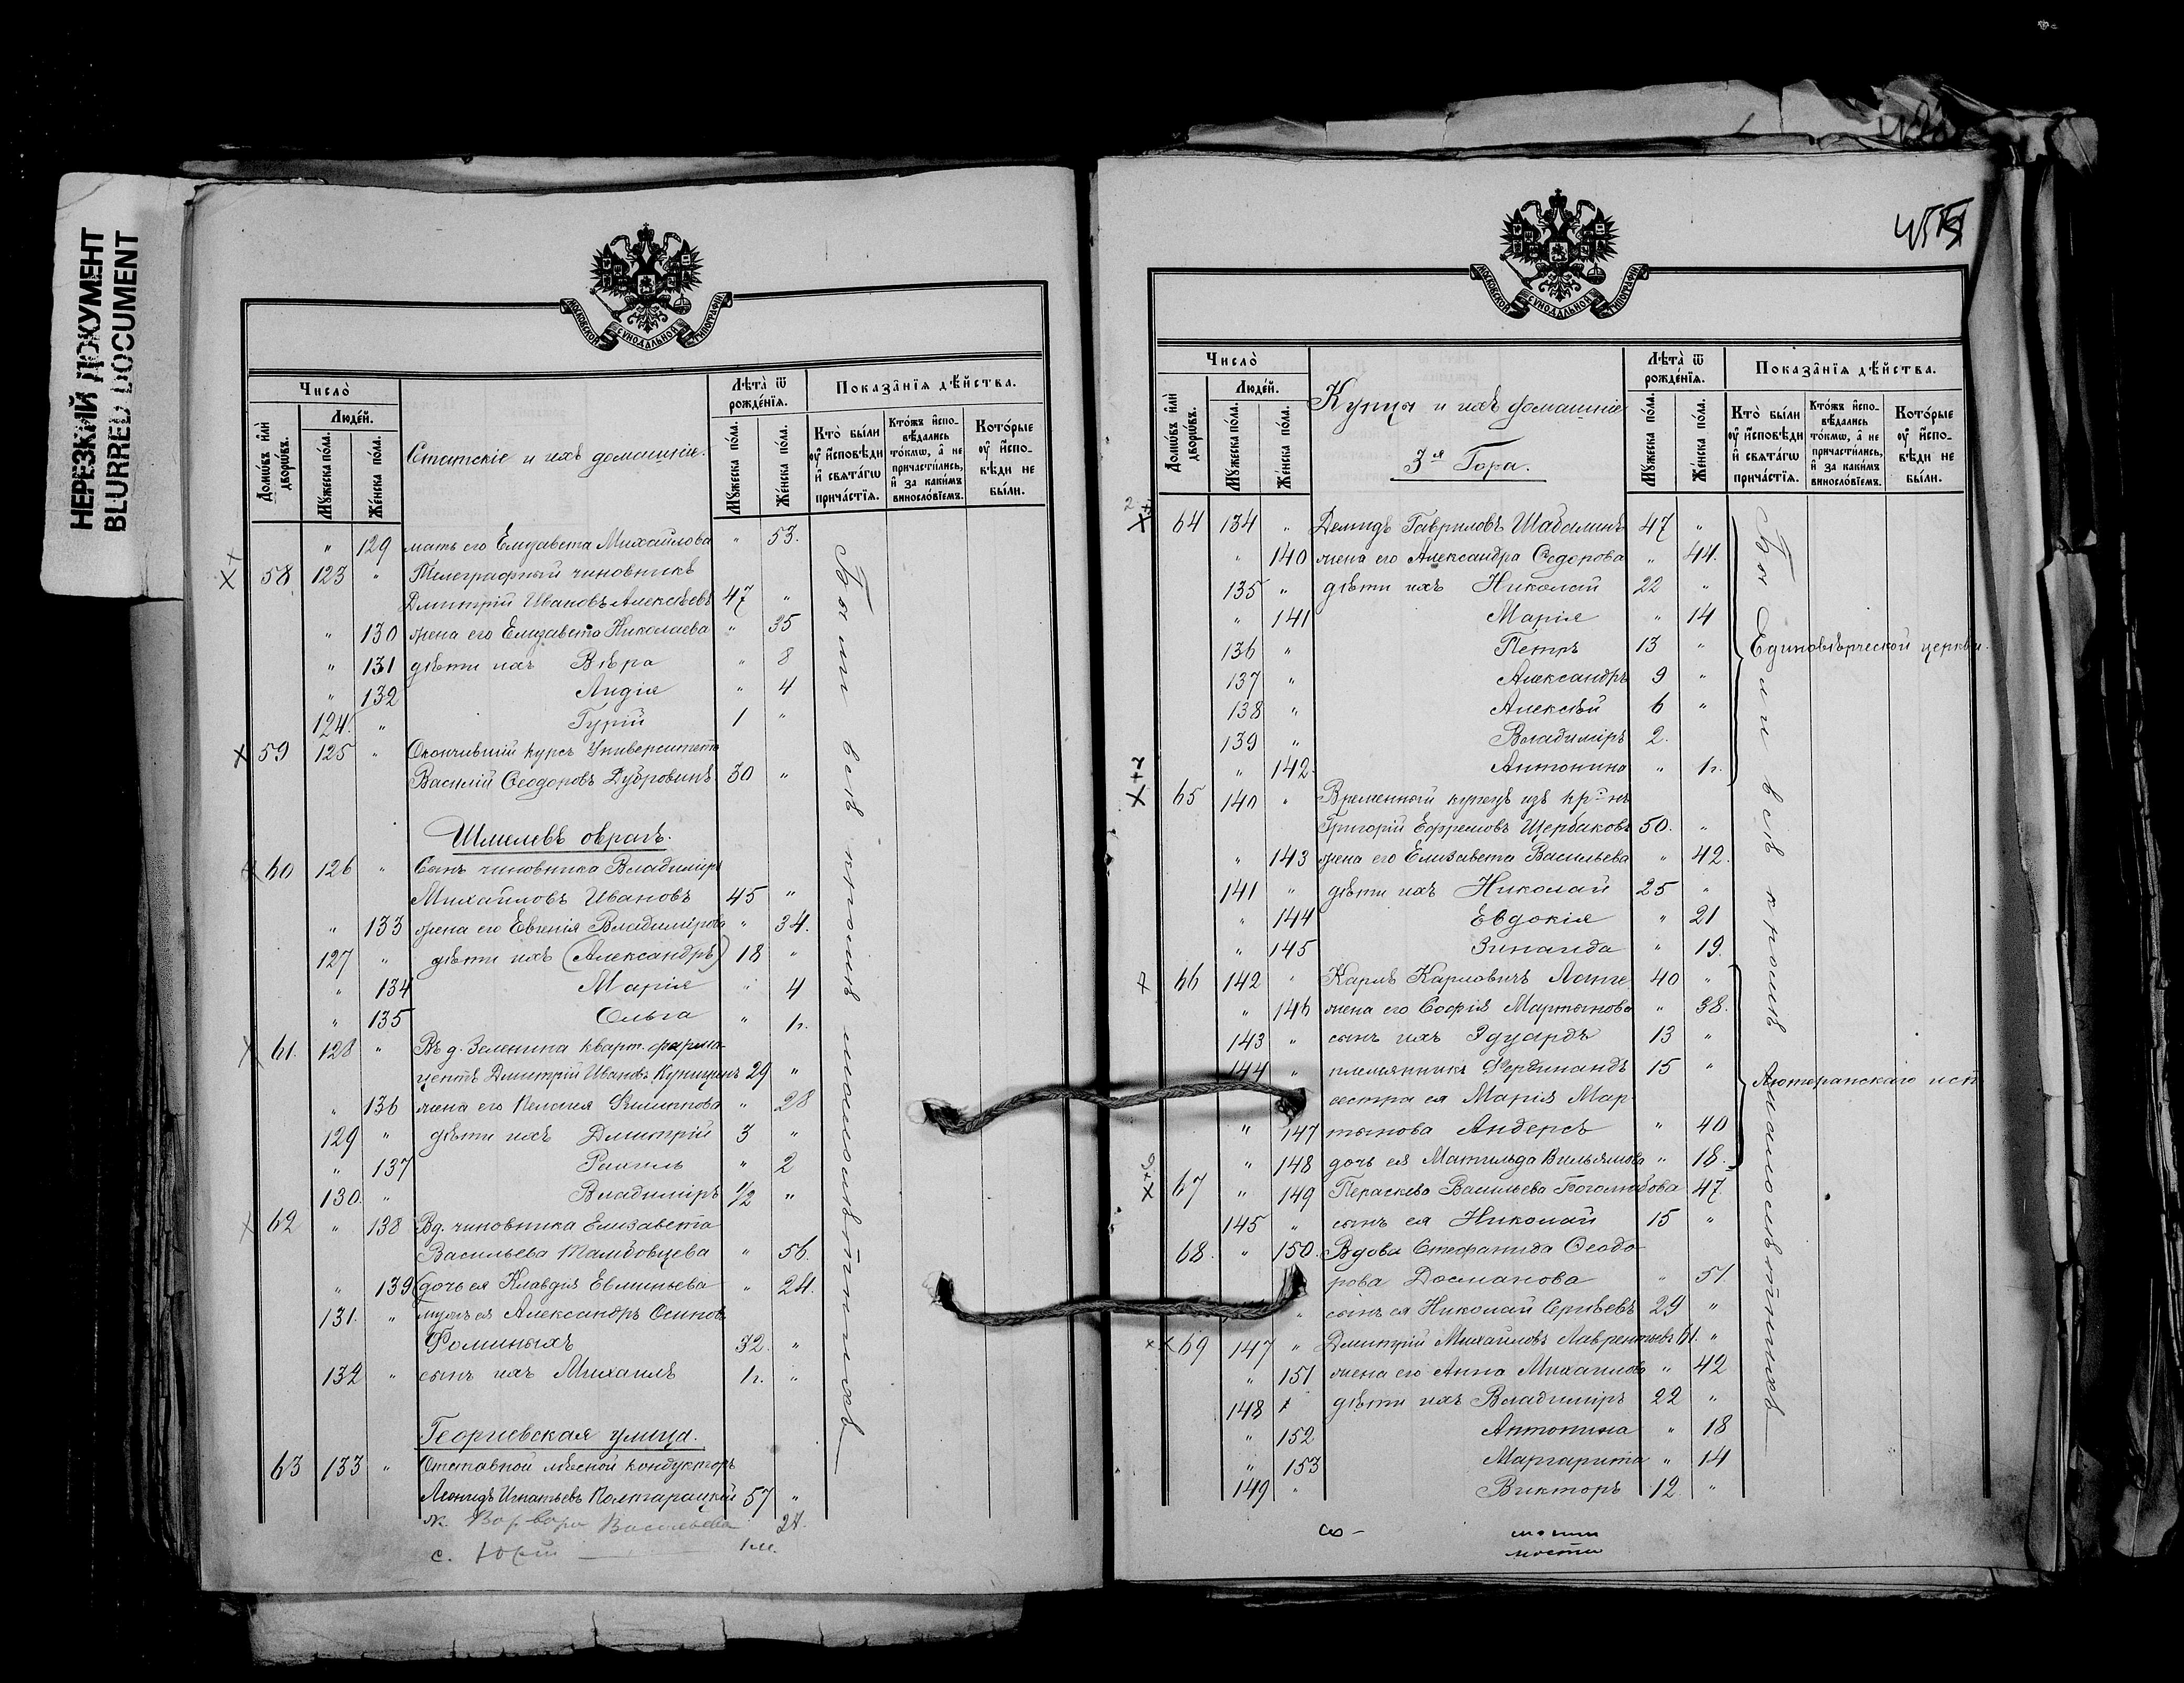 НЕРЕЗКИЙ ДОКУМЕНТ
BLURRED DOCUMENT
МОСКОВСКОЙ СѴНОДАЛЬНОЙ ТИПОГРАФІИ
Число̀
Домѡвъ и҆лѝ дворѡвъ.
Люде́й.
Мꙋжеска по́ла.
Же́нска по́ла.
Статскіе и ихъ домашніе.
Лѣта̀ ѿ рожде́нїѧ.
Мꙋжеска по́ла.
Же́нска по́ла.
Показа̂нїѧ дѣ́йства.
Кто̀ бы́ли ᲂу҆ и҆́сповѣди и҆ свѧта́гѡ прича́стїѧ.
Кто́жъ и҆спо-вѣдались то́кмѡ, а҆ не причасти́лись, и҆ за каки́мъ винослόвїемъ.
Кото́рые ᲂу҆ и҆́спо-вѣди не бы́ли.
" 129 мать его Елизавета Михайлова " 53.
58 123 " Телеграфный чиновникъ
Дмитрій Ивановъ Алексѣевъ 47 "
" 130 жена его Елизавета Николаева " 35
" 131 дѣти ихъ Вѣра " 8
" 132 Лидія " 4
124. " Гурій 1 "
59 125 " Окончившій курсъ Университета
Василій Ѳеодоровъ Дубровинъ 30 "
Шмелевъ оврагъ.
60 126 " Сынъ чиновника Владиміръ
Михайловъ Ивановъ 45 "
" 133 жена его Евгенія Владимірова " 34.
127 " дѣти ихъ (Александръ) 18 "
" 134 Марія " 4
" 135 Ольга " 1г.
61. 128 " Въ д. Зеленина кварт. фарма-
цевтъ Дмитрій Иванов. Купицынъ 29 "
" 136 жена его Пелагея Филиппова " 28
129 " дѣти ихъ Дмитрій 3 "
" 137 Рахиль " 2
130. " Владиміръ 1/2 "
62 " 138 Вд. чиновника Елизавета
Васильева Тамбовцева " 56.
" 139 (дочь ея Клавдія Евлипьева " 24.
131. " мужъ ея Александръ Осиповъ
Ѳоминыхъ 32. "
132 " сынъ ихъ Михаилъ 1г. "
Георгіевская улица.
63 133 " Отставной лѣсной кондукторъ
Леонидъ Игнатьевъ Полтарацкій 57 "
ж. Варвара Васильева 24.
с. Юрій 1м.
Были всѣ кромѣ малолѣтнихъ
МОСКОВСКОЙ СѴНОДАЛЬНОЙ ТИПОГРАФІИ
Число̀
Домѡвъ и҆лѝ дворѡвъ.
Люде́й.
Мꙋжеска по́ла.
Же́нска по́ла.
Купцы и ихъ домашніе
3я Гора.
Лѣта̀ ѿ рожде́нїѧ.
Мꙋжеска по́ла.
Же́нска по́ла.
Показа̂нїѧ дѣ́йства.
Кто̀ бы́ли ᲂу҆ и҆́сповѣди и҆ свѧта́гѡ прича́стїѧ.
Кто́жъ и҆спо-вѣдались то́кмѡ, а҆ не причасти́лись, и҆ за каки́мъ винослόвїемъ.
Кото́рые ᲂу҆ и҆́спо-вѣди не бы́ли.
64 134 " Демидъ Гавриловъ Шабалинъ 47 "
" 140 жена его Александра Ѳедорова " 44.
135 " дѣти ихъ Николай 22 "
" 141 Марія " 14
136 " Петръ 13 "
Единовѣрческой церкви.
137 " Александръ 9 "
138 " Алексѣй 6 "
139 " Владиміръ 2.
" 142 Антонина " 1г.
65 140 " Временный купецъ изъ кр-нъ
Григорій Ефремовъ Щербаковъ 50. "
" 143 жена его Елизавета Васильева " 42.
141 " дѣти ихъ Николай 25 "
" 144 Евдокія " 21
" 145 Зинаида " 19.
66 142 " Карлъ Карловичъ Ланге 40 "
" 146 жена его Софія Мартынова " 38.
143 " сынъ ихъ Эдуардъ 13 "
144 " племянникъ Фердинандъ 15 "
Лютеранскаго исп.
сестра ея Марія Мар-
" 147 тынова Андерсъ " 40
" 148 дочь ея Матильда Вильямова " 18.
67 " 149 Параскева Васильева Боголюбова 47.
145 " сынъ ея Николай 15 "
68. " 150. Вдова Стефанида Ѳеодо-
рова Досманова " 51.
" сынъ ея Николай Сергѣевъ 29 "
69 147 " Дмитрій Михайловъ Лаврентьевъ 61. "
" 151 жена его Анна Михайлова " 42
148 дѣти ихъ Владиміръ 22 "
" 152 Антонина " 18
" 153 Маргарита " 14
149 " Викторъ 12. "
Были всѣ кромѣ малолѣтнихъ